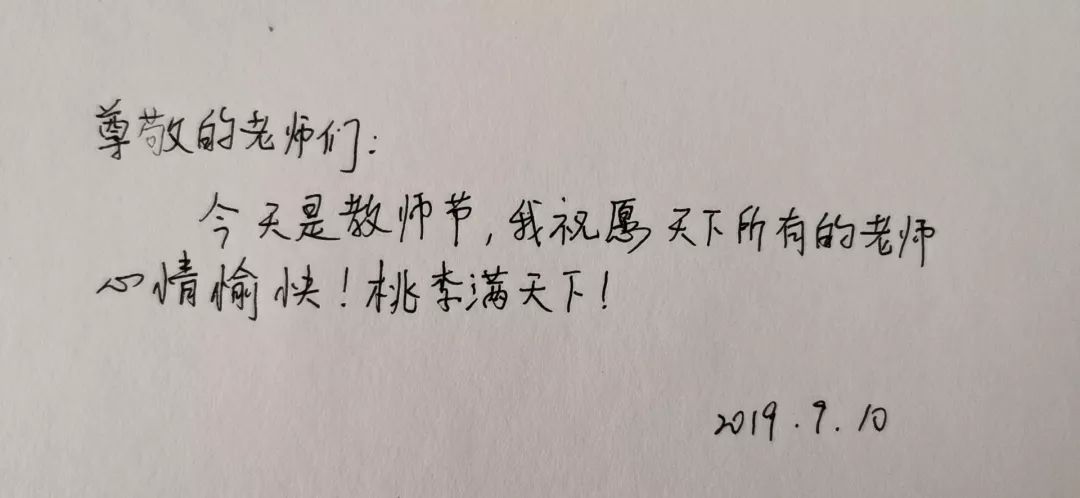 尊敬的老师们:
今天是教师节,我祝愿天下所有的老师
心情愉快!桃李满天下!
2019.9.10